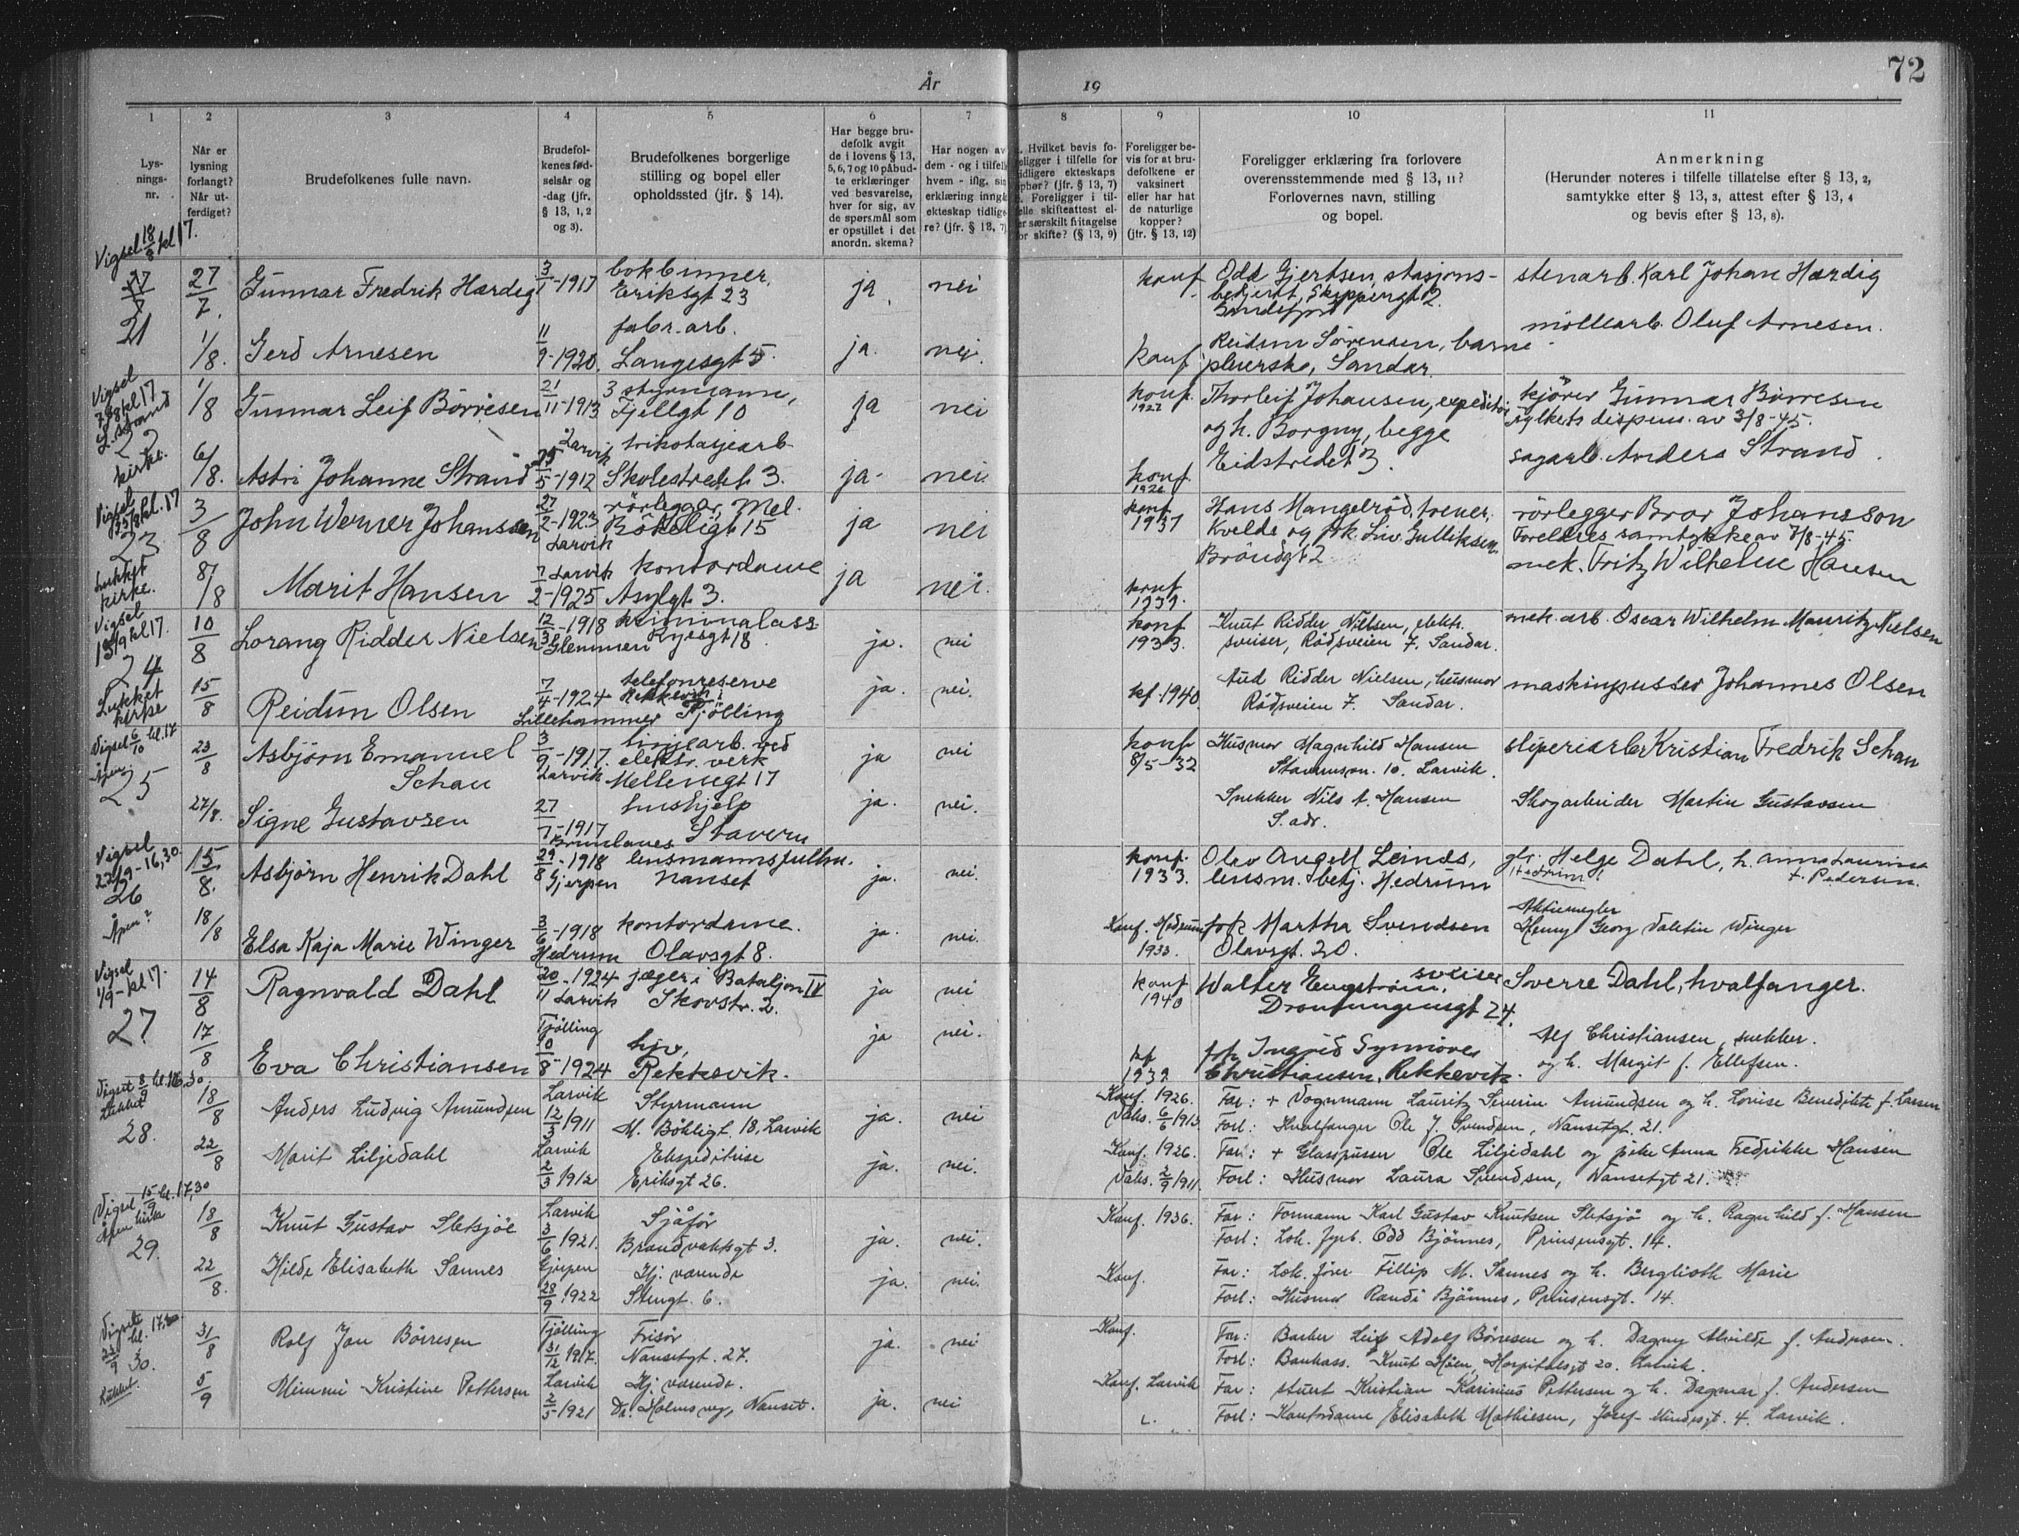 År
19
72
1
2
3
4
5
6
7
8
9
10
11
Lys-
nings-
nr.
Når er
lysning
forlangt?
Når ut-
ferdiget?
Brudefolkenes fulle navn.
Brudefol-
kenes fød-
selsår og
-dag (jfr.
§ 13, 1, 2
og 3).
Brudefolkenes borgerlige
stilling og bopel eller
opholdssted (jfr. § 14).
Har begge bru-
defolk avgit
de i lovens § 13,
5, 6, 7 og 10 påbud-
te erklæringer
ved besvarelse,
hver for sig, av
de spørsmål som
er opstillet i det
anordn. skema?
Har nogen av
dem - og i tilfelle
hvem - iflg. sin
erklæring inngå
ekteskap tidlige-
re? (jfr. § 13, 7)
Hvilket bevis fo-
religger i tilfelle for
tidligere ekteskaps
ophør? (jfr. § 13, 7)
Foreligger i til-
felle skifteattest el-
er særskilt fritagelse
for skifte? (§ 13, 9)
Foreligger be-
vis for at bru-
defolkene er
vaksinert
eller har hat
de naturlige
kopper?
(jfr. § 13, 12)
Foreligger erklæring fra forlovere
overensstemmende med § 13, 11?
Forlovernes navn, stilling
og bopel.
Anmerkning
(Herunder noteres i tilfelle tillatelse efter § 13, 2,
samtykke efter § 13, 3, attest efter § 13, 4
og bevis efter § 13, 8).
Vigsel 18/8 kl 17.
21
27/7. Gunnar Fredrik Hærdig 3/1-1917 bokbinner, Eriksgt 23 ja nei konf Odd Gjertsen, stasjons-
betjent, Skippergt 2. Sandefjord
stenarb. Karl Johan Hærdig
1/8. Gerd Arnesen 11/9-1920. fabr. arb. Langesgt 5. ja. nei. konf Reidun Sørensen, barne
pleierske, Sandar.
møllearb. Oluf Arnesen.
Vigsel
kl 17
22
kirke.
1/8 Gunnar Leif Børresen 21/11-1913 3 styrmann, Fjellgt 10 ja nei konf. 1927 Thorleif Johansen, expeditør
og h. Borgny, begge
Eidstredet 3.
kjører Gunnar Børresen
fylkets dispens. av 3/8-45.
6/8. Astri Johanne Strand Larvik 25/5-1912 trikotasjearb. Skolestredet 3. ja. nei. konf. 1926
sagarb. Anders Strand.
Vigsel 25/8 kl. 17
23
Lukket
kirke.
3/8 John Werner Johansson 27/2-1923 Larvik rørlegger, Mel. Bökeligt 15 ja nei konf 1937 Hans Mangelrød, trener,
Kvelde og frk. Liv Gulliksen,
Brandgt 2
rørlegger Bror Johansson
Foreldres samtykke av 7/8-45.
8/8 Marit Hansen 7/2-1925 Larvik kontordame Asylgt 3. ja nei. konf 1939.
mek. Fritz Wilhelm Hansen
Vigsel
kl 17.
24
Lukket
kirke
10/8 Lorang Ridder Nielsen 12/3-1918 Glemmen kriminalass Ryesgt 18. ja. nei konf 1933. Knut Ridder Nielsen, elektr.
sveiser, Rødsveien 7. Sandar.
mek. arb. Oscar Wilhelm Mauritz Nielsen
15/8 Reidun Olsen 7/4-1924 Lillehammer telefonreserve Rekkevik, Tjølling ja. nei. kf. 1940 Aud Ridder Nielsen, husmor
Rødsveien 7. Sandar.
maskinpusser Johannes Olsen
Vigsel 6/10 kl. 17
Åpen.
25
23/8 Asbjørn Emanuel
Schau 3/9-1917. Larvik linjearb. ved
elektr. verk
Mellemgt 17 ja nei konf 8/5-32 Husmor Magnhild Hansen
Stavernsvn. 10. Larvik.
sliperiarb Kristian Fredrik Schau
27/8. Signe Gustavsen 27/7-1917 Brunlanes hushjelp Stavern ja. nei. Snekker Nils A. Hansen
S. adr.
Skogarbeider Martin Gustavsen
Vigsel
22/9-16,30.
26
Åpen?
15/8. Asbjørn Henrik Dahl 29/8-1918 Gjerpen lensmannsfullm. Nanset ja. nei. konf. 1933. Olav Angell Leinds,
lensm. betj. Hedrum
gbr. Helge Dahl, h. Anna Laurina
Hedrum! f. Pedersen.
18/8 Elsa Kaja Marie Winger 3/6-1918 Hedrum kontordame. Olavsgt 8. ja. nei. Konf. Hedrum 1933. frk Martha Svendsen
Olavsgt. 20.
Aktiemegler
Henry Georg Valetin Winger
Vigsel
1/9-kl 17.
27
14/8 Ragnvald Dahl 20/11-1924 Larvik jæger i Bataljon IV Skovstr. 2. ja nei konf 1940 Walter Engstrøm, sveiser
Dronningensgt 24.
Sverre Dahl, hvalfanger.
17/8 Eva Christiansen Tjølling 10/8-1924 hjv, Rekkevik. ja nei. kf 1939 frk Ingrid Synnøve
Christiansen, Rekkevik.
Alf Christiansen, snekker.
og h. Margit f. Ellefsen.
Vigsel 8/9 kl. 16,30.
Lukket
28.
18/8 Anders Ludvig Amundsen Larvik 12/3 1911 Styrmann M. Bökligt. 18, Larvik ja. nei Konf. 1926. Vaks. 6/6 1913. Far: + Vognmann Lauritz Severin Amundsen og h. Lovise Benedikte f. Larsen
Forl: Hvalfanger Ole J. Svendsen, Nansetgt. 21.
22/8 Marit Liljedahl Larvik 2/3 1912 Ekspeditrise Eriksgt 26. ja. nei. Konf. 1926. Vaks. 2/9 1911. Far: + Glasspuser Ole Liljedahl og pike Anna Fredrikke Hansen
Forl: Husmor Laura Svendsen, Nansetgt 21.
Vigsel 15/9 kl. 17,30
Åpen kirke
29.
18/8 Knut Gustav Sletsjøe Larvik 3/6 1921. Sjåfør Brandvaktsgt 3. ja. nei. Konf. 1936. Far: Formann Karl Gustav Knutsen Sletsjø og h. Ragnhild f. Hansen
Forl: Lok. fyrb. Odd Bjønnes, Prinsensgt. 14.
22/8. Hilde Elisabeth Sannes Gjerpen 28/9 1922 Hj. værende Stengt. 6. ja. nei. Konf. Far: Lok. fører Fillip M. Sannes og h. Berglioth Marie
Forl: Husmor Randi Bjønnes, Prinsensgt. 14.
Vigsel
22/9
30.
Lukket.
31/8 Rolf Jan Börresen Tjølling 31/12 1917. Frisør Nansetgt. 27. ja. nei Konf. Far: Barber Leif Adolf Børresen og h. Dagny Alvilde f. Andersen.
Forl: Bankass. Knut Moen, Hospitalsgt 20. Larvik.
5/9 Mimmi Kristine Pettersen Larvik 2/5-1921 Hj. værende. Dr. Holms veg, Nanset. ja. nei Konf. Larvik Far: stuert Kristian Karinius Pettersen og h. Dagmar f. Andersen
Forl: Kontordame Elisabeth Mathiesen, Josef Mindesgt. 4. Larvik.